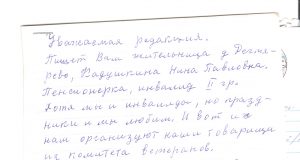 Уважаемая редакция.
Пишет Вам жительница д. Дегтя-
рево, Кадушкина Нина Павловна.
Пенсионерка, инвалид II гр.
Хотя мы и инвалиды, но празд-
ники мы любим. И вот их
нам организуют наши товарищи
из комитета ветеранов.